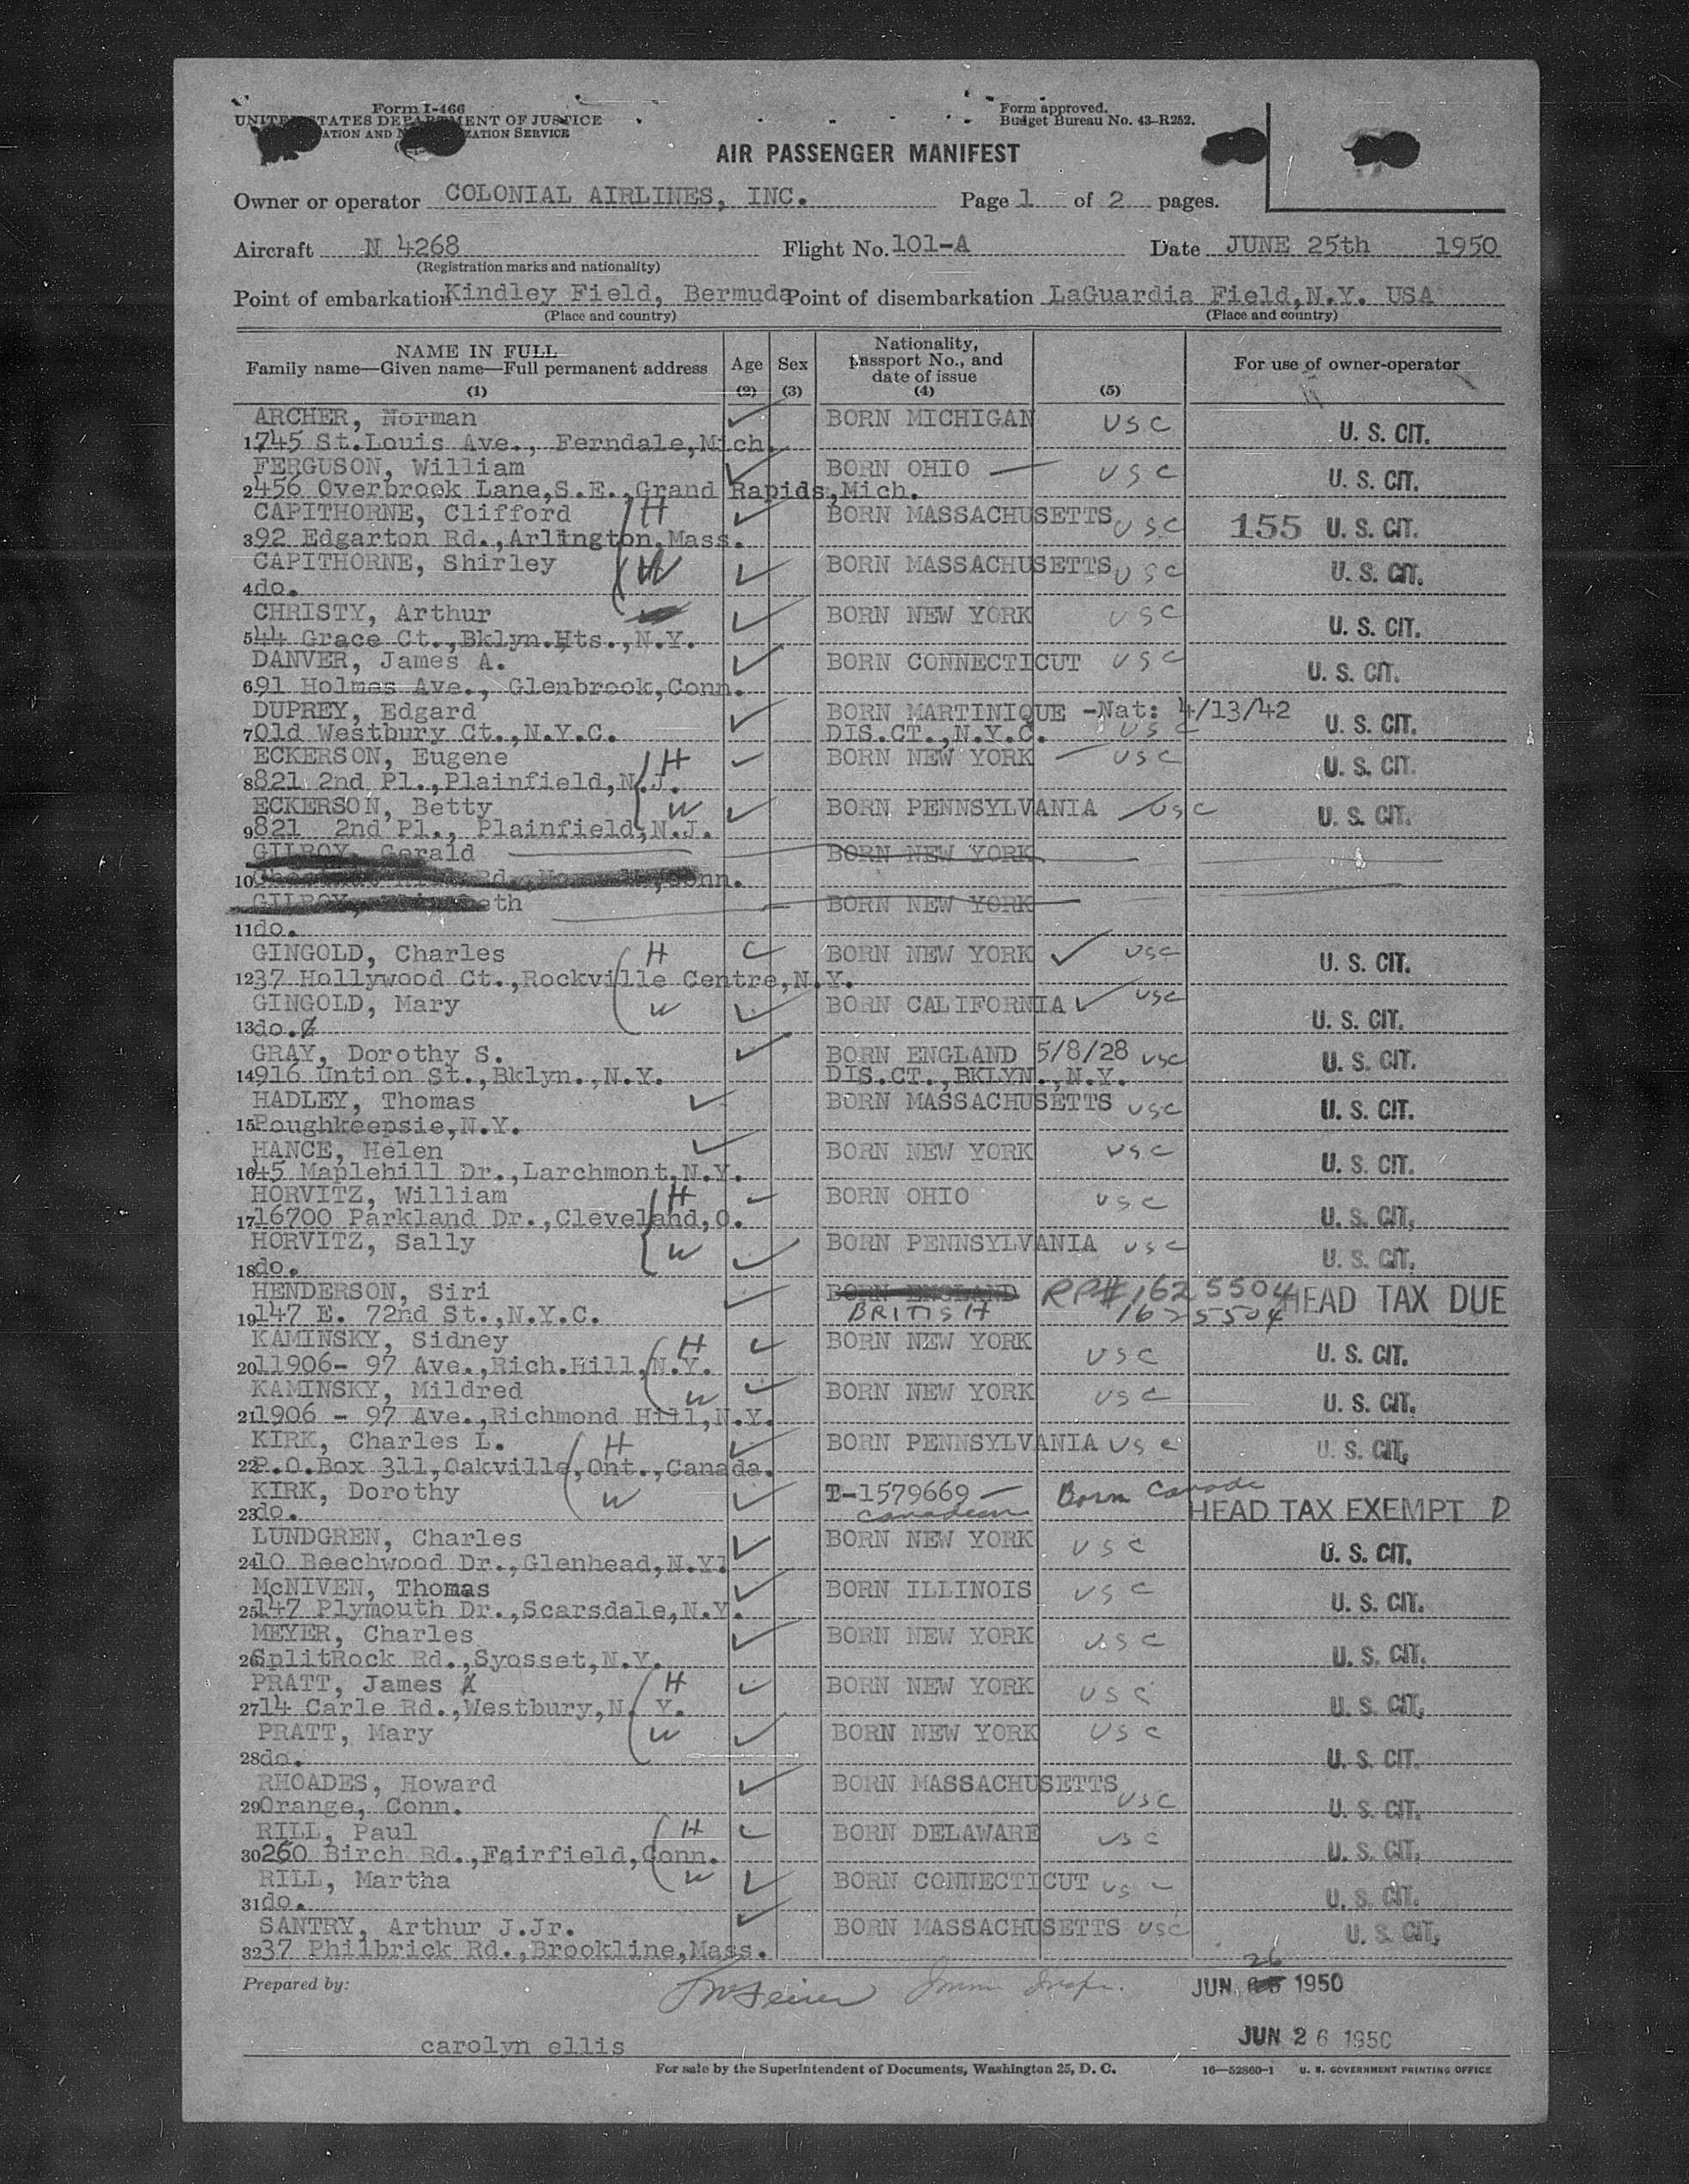 Form I-466
UNITED STATES DEPARTMENT OF JUSTICE
Form approved.
Budget Bureau No. 43-R252.
AIR PASSENGER MANIFEST
Owner or operator COLONIAL AIRLINES, INC. Page 1 of 2 pages.
Aircraft N 4268 Flight No. 101-A Date JUNE 25th 1950
(Registration marks and nationality)
Point of embarkation Kindley Field, Bermuda Point of disembarkation LaGuardia Field,N.Y. USA
(Place and country) (Place and country)
NAME IN FULL
Family name—Given name—Full permanent address
(1)
Age
(2)
Sex
(3)
Nationality, passport No., and date of issue
(4)
(5)
For use of owner-operator
ARCHER, Norman BORN MICHIGAN USC U. S. CIT.
1 745 St.Louis Ave., Ferndale,Mich.
FERGUSON, William BORN OHIO — USC U. S. CIT.
2 456 Overbrook Lane,S.E.,Grand Rapids,Mich.
CAPITHORNE, Clifford H BORN MASSACHUSETTS USC 155 U. S. CIT.
3 92 Edgarton Rd.,Arlington,Mass.
CAPITHORNE, Shirley W BORN MASSACHUSETTS USC U. S. CIT.
4 do.
CHRISTY, Arthur BORN NEW YORK USC U. S. CIT.
5 44 Grace Ct.,Bklyn.Hts.,N.Y.
DANVER, James A. BORN CONNECTICUT USC U. S. CIT.
6 91 Holmes Ave., Glenbrook,Conn.
DUPREY, Edgard BORN MARTINIQUE -Nat: 4/13/42 U. S. CIT.
7 Old Westbury Ct.,N.Y.C. DIS.CT.,N.Y.C. USC
ECKERSON, Eugene H BORN NEW YORK — USC U. S. CIT.
8 821 2nd Pl.,Plainfield,N.J.
ECKERSON, Betty W BORN PENNSYLVANIA USC U. S. CIT.
9 821 2nd Pl., Plainfield,N.J.
GILROY, Gerald BORN NEW YORK
10 Conn.
GILROY, BORN NEW YORK
11 do.
GINGOLD, Charles H BORN NEW YORK USC U. S. CIT.
12 37 Hollywood Ct.,Rockville Centre,N.Y.
GINGOLD, Mary W BORN CALIFORNIA USC U. S. CIT.
13 do.
GRAY, Dorothy S. BORN ENGLAND 5/8/28 USC U. S. CIT.
14 916 Untion St.,Bklyn.,N.Y. DIS.CT.,BKLYN.,N.Y.
HADLEY, Thomas BORN MASSACHUSETTS USC U. S. CIT.
15 Poughkeepsie,N.Y.
HANCE, Helen BORN NEW YORK USC U. S. CIT.
16 45 Maplehill Dr.,Larchmont,N.Y.
HORVITZ, William H BORN OHIO USC U. S. CIT.
17 16700 Parkland Dr.,Cleveland,O.
HORVITZ, Sally W BORN PENNSYLVANIA USC U. S. CIT.
18 do.
HENDERSON, Siri BORN ENGLAND RP# 1625504 HEAD TAX DUE
19 147 E. 72nd St.,N.Y.C. BRITISH 1625504
KAMINSKY, Sidney H BORN NEW YORK USC U. S. CIT.
20 11906- 97 Ave.,Rich.Hill,N.Y.
KAMINSKY, Mildred W BORN NEW YORK USC U. S. CIT.
21 1906 - 97 Ave.,Richmond Hill,N.Y.
KIRK, Charles L. H BORN PENNSYLVANIA USC U. S. CIT.
22 P.O.Box 311,Oakville,Ont.,Canada.
KIRK, Dorothy W T-1579669 — Born Canada
23 do. Canadian HEAD TAX EXEMPT D
LUNDGREN, Charles BORN NEW YORK USC U. S. CIT.
24 10 Beechwood Dr.,Glenhead,N.Y.
McNIVEN, Thomas BORN ILLINOIS USC U. S. CIT.
25 147 Plymouth Dr.,Scarsdale,N.Y.
MEYER, Charles BORN NEW YORK USC U. S. CIT.
26 SplitRock Rd.,Syosset,N.Y.
PRATT, James H BORN NEW YORK USC U. S. CIT.
27 14 Carle Rd.,Westbury,N.Y.
PRATT, Mary W BORN NEW YORK USC U. S. CIT.
28 do.
RHOADES, Howard BORN MASSACHUSETTS USC U. S. CIT.
29 Orange, Conn.
RILL, Paul H BORN DELAWARE USC U. S. CIT.
30 260 Birch Rd.,Fairfield,Conn.
RILL, Martha W BORN CONNECTICUT US U. S. CIT.
31 do.
SANTRY, Arthur J.Jr. BORN MASSACHUSETTS USC U. S. CIT.
32 37 Philbrick Rd.,Brookline,Mass.
Prepared by: JUN 26 1950
carolyn ellis JUN 26 1950
For sale by the Superintendent of Documents, Washington 25, D. C. 16—52860-1 U. S. GOVERNMENT PRINTING OFFICE